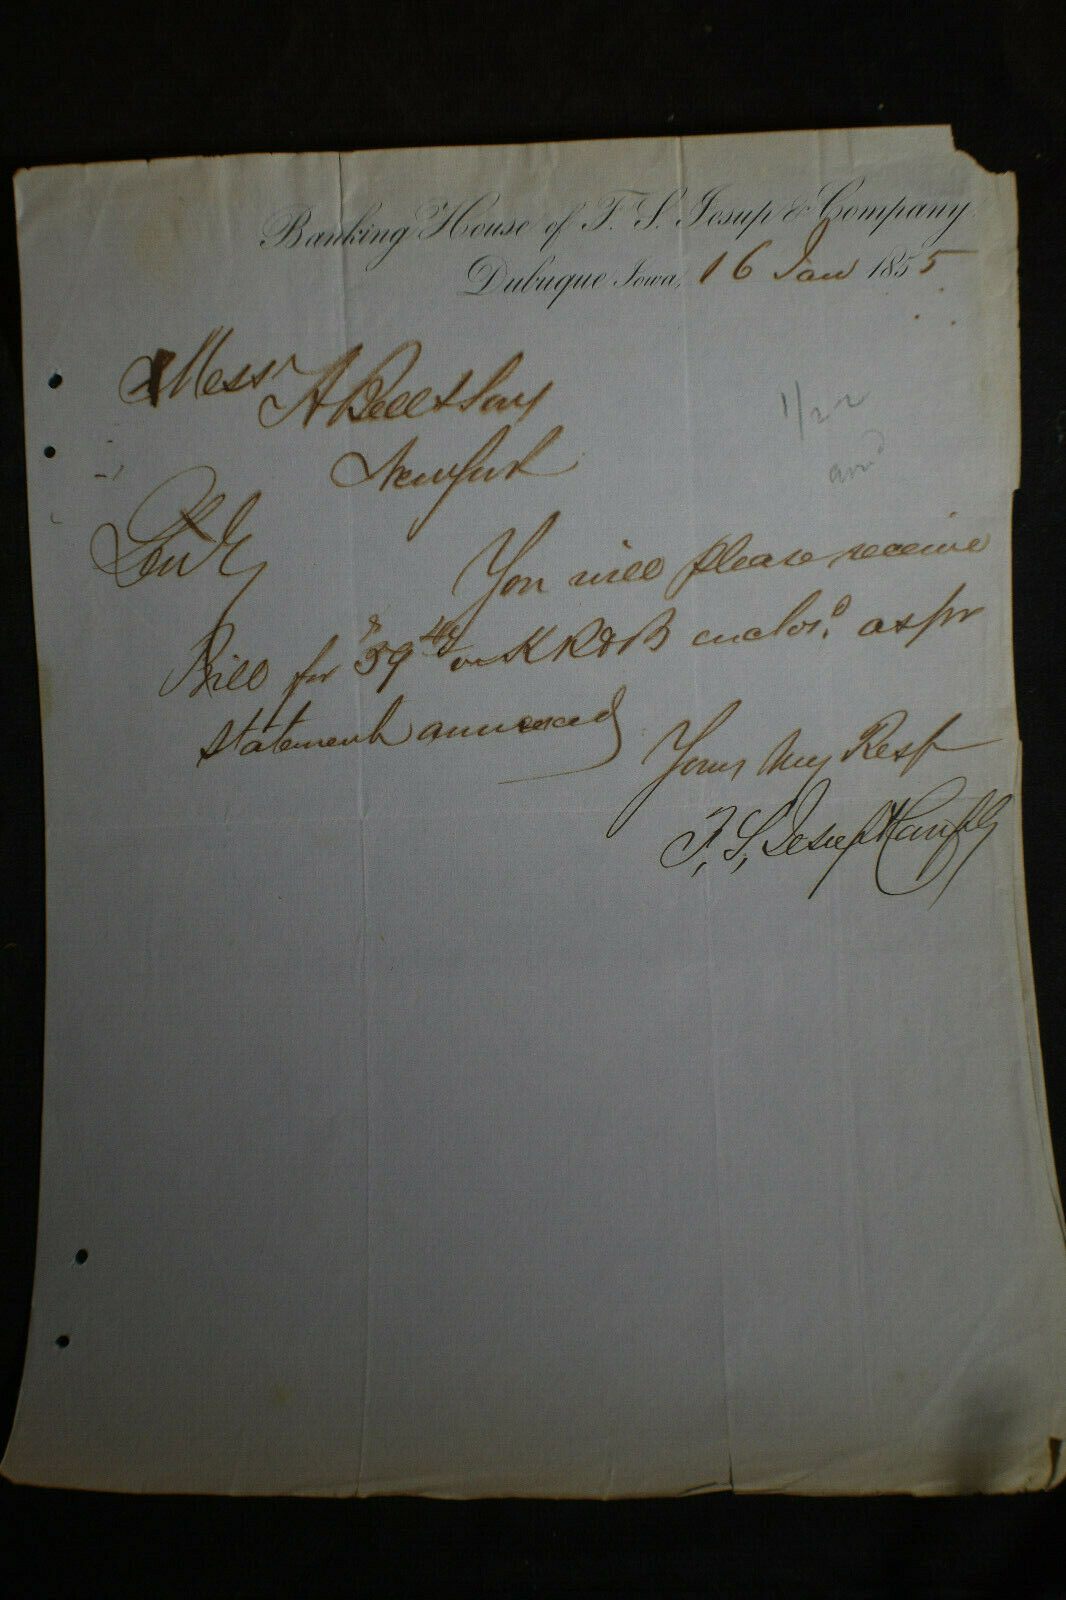 Banking House of F. S. Jesup & Company
Dubuque Iowa, 16 Jan 1855
Messr
A Bell & Son
New York
1/22
Dear Sir
You will please receive
Bill for $39 40 on K R & B enclos.d as pr
statement annexed
Yours Very Resp
F. S. Jesup & Company